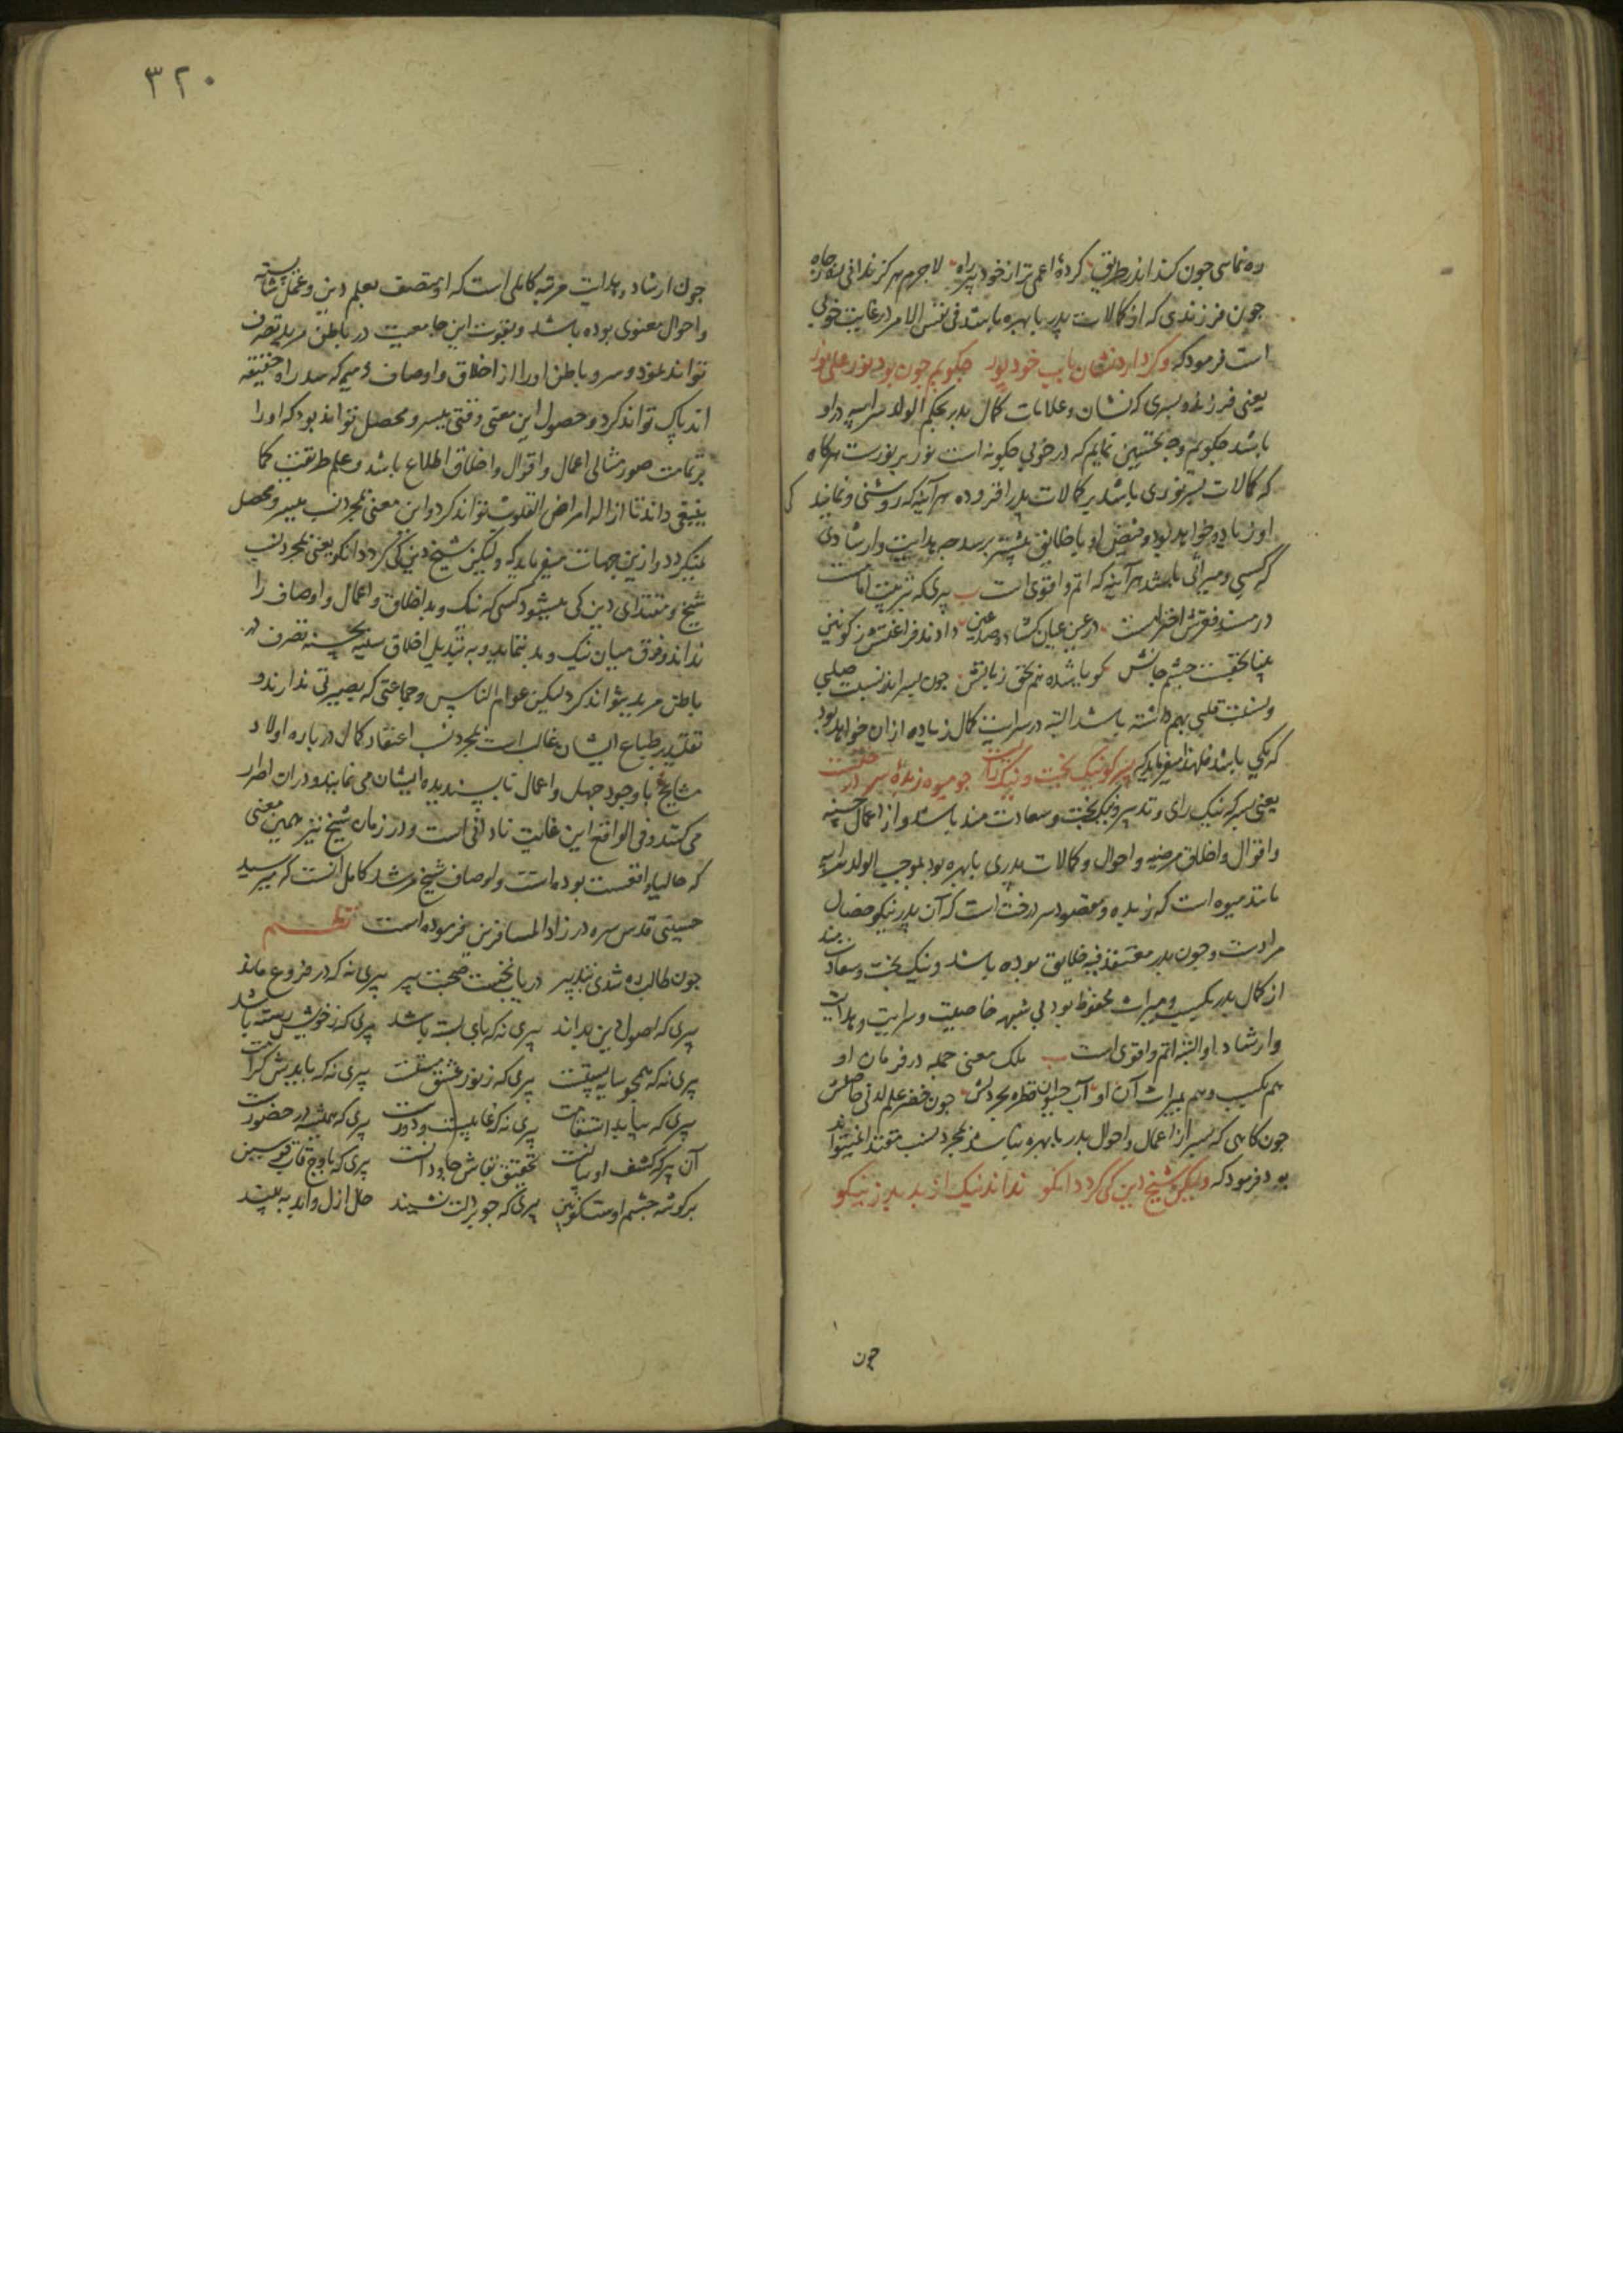 ره نمایی چون کند اندر طریق کردهٔ اعمی تر از خود پیر راه لاجرم هرگز ندانی ره ز چاه
چون فرزندی که از کمالات پدر با بهره باشد فی نفس الامر در غایت خوبی
است فرمود که وگر دارد نشان باب خود پور چکویم چون بود نور علی نور
یعنی فرزند و پسری که نشان و علامات کمال پدر بحکم الولد سر ابیه در او
باشد چکویم وجه تحسین نمایم که در خوبی چکونه است نور بر نورست هرکاه
که کمالات پسر نوری باشد بر کمالات پدر افزوده هر آینه که روشنی و نمایند کی
او زیاده خواهد بود و فیض او با خلایق بیشتر برسد چه هدایت و ارشادی
که کسبی و میراثی باشد هر آینه که اتم و اقوی است پیری که
در مسند فقرش در عین عیان کشاده صد عین دادند فراغتش ز کونین
بینا بحقیقت چشم جانش کویا شده هم بحق زبانش چون پسر را نسبت صلبی
و نسبت قلبی بهم داشته باشد البته در سرایت کمال زیاده از آن خواهد بود
که یکی باشد فلهذا میفرماید که پسر کو نیک بخت و نیک رایست چو میوه زبدهٔ سر درختست
یعنی پسر که نیک رای و تدبیر و نیکبخت و سعادت مند باشد و از اعمال حسنه
و اقوال و اخلاق مرضیه و احوال و کمالات پدری با بهره بود بموجب الولد سر ابیه
مانند میوه است که زبده و مقصود سر درخت است که آن پدر نیکو خصال
مرادست و چون پدر معتقد فیه خلایق بوده باشد و نیک بخت و سعادت مند
از کمال پدر بکسب و میراث محفوظ بود بی شبهه خاصیت و سرایت و هدایت
و ارشاد او البته اتم و اقوی است ملک معنی جمله در فرمان او
هم بکسب و هم بمیراث آن او آب حیوان قطره بحر دلش چون خضر علم لدنی حاصلش
چون کاهی که پسر از اعمال و احوال پدر با بهره نباشد بمجرد نسب مقتدا نمیتواند
بود فرمود که ولیکن شیخ دین کی کردد آنکو نداند نیک از بد بد ز نیکو
چون
۳۲۰
چون ارشاد و هدایت مرتبه کاملی است که او متصف بعلم دین و عمل شایسته
و احوال معنوی بوده باشد و بقوت این جامعیت در باطن مرید تصرف
تواند نمود و سر و باطن او را از اخلاق و اوصاف ذمیم که سد راه حقیقه
اند پاک تواند کرد و حصول این معنی وقتی میسر و محصل تواند بود که او را
بر تمامت صور مثالی اعمال و اقوال و اخلاق اطلاع باشد و علم طریقت کما
ینبغی داند تا ازاله امراض القلوب تواند کرد و این معنی بمجرد نسب میسر و محصل
نمیکردد و ازین جهات میفرماید که ولیکن شیخ دین کی کردد آنکو یعنی بمجرد نسب
شیخ و مقتدای دین کی میشود کسی که نیک و بد اخلاق و اعمال و اوصاف را
نداند و فرق میان نیک و بد ننماید و به تبدیل اخلاق سیئه بحسنه تصرف در
باطن مرید نتواند کرد لیکن عوام الناس و جماعتی که بصیرتی ندارند و
تقلید بر طباع ایشان غالب است بمجرد نسب اعتقاد کمال درباره اولاد
مشایخ با وجود جهل و اعمال ناپسندیده ایشان می نمایند و در آن اصرار
می کنند و فی الواقع این غایت نادانی است و در زمان شیخ نیز همین معنی
که حالیا واقعست بوده است و اوصاف شیخ مرشد کامل آنست که میر سید
حسینی قدس سره در زاد المسافرین فرموده است نظم
چون طالب ره شدی دریاب نخست صحبت پیر پیری نه که در فروع ماند
پیری که اصول دین بداند پیری نه که پای بسته باشد پیری که ز خویش رسته باشد
پیری نه که همچو سایه پستست پیری که ز نور عشق مستست پیری نه که
پیری که بیاید استقامت پیری نه که غایبست و دورست پیری که همیشه در حضورست
آن پیر که کشف او تحقیق بقاش جاودانست پیری که باوج قاب قوسین
بر کوشه چشم اوست کونین پیری که چو بر نشیند حال ازل و ابد به بیند